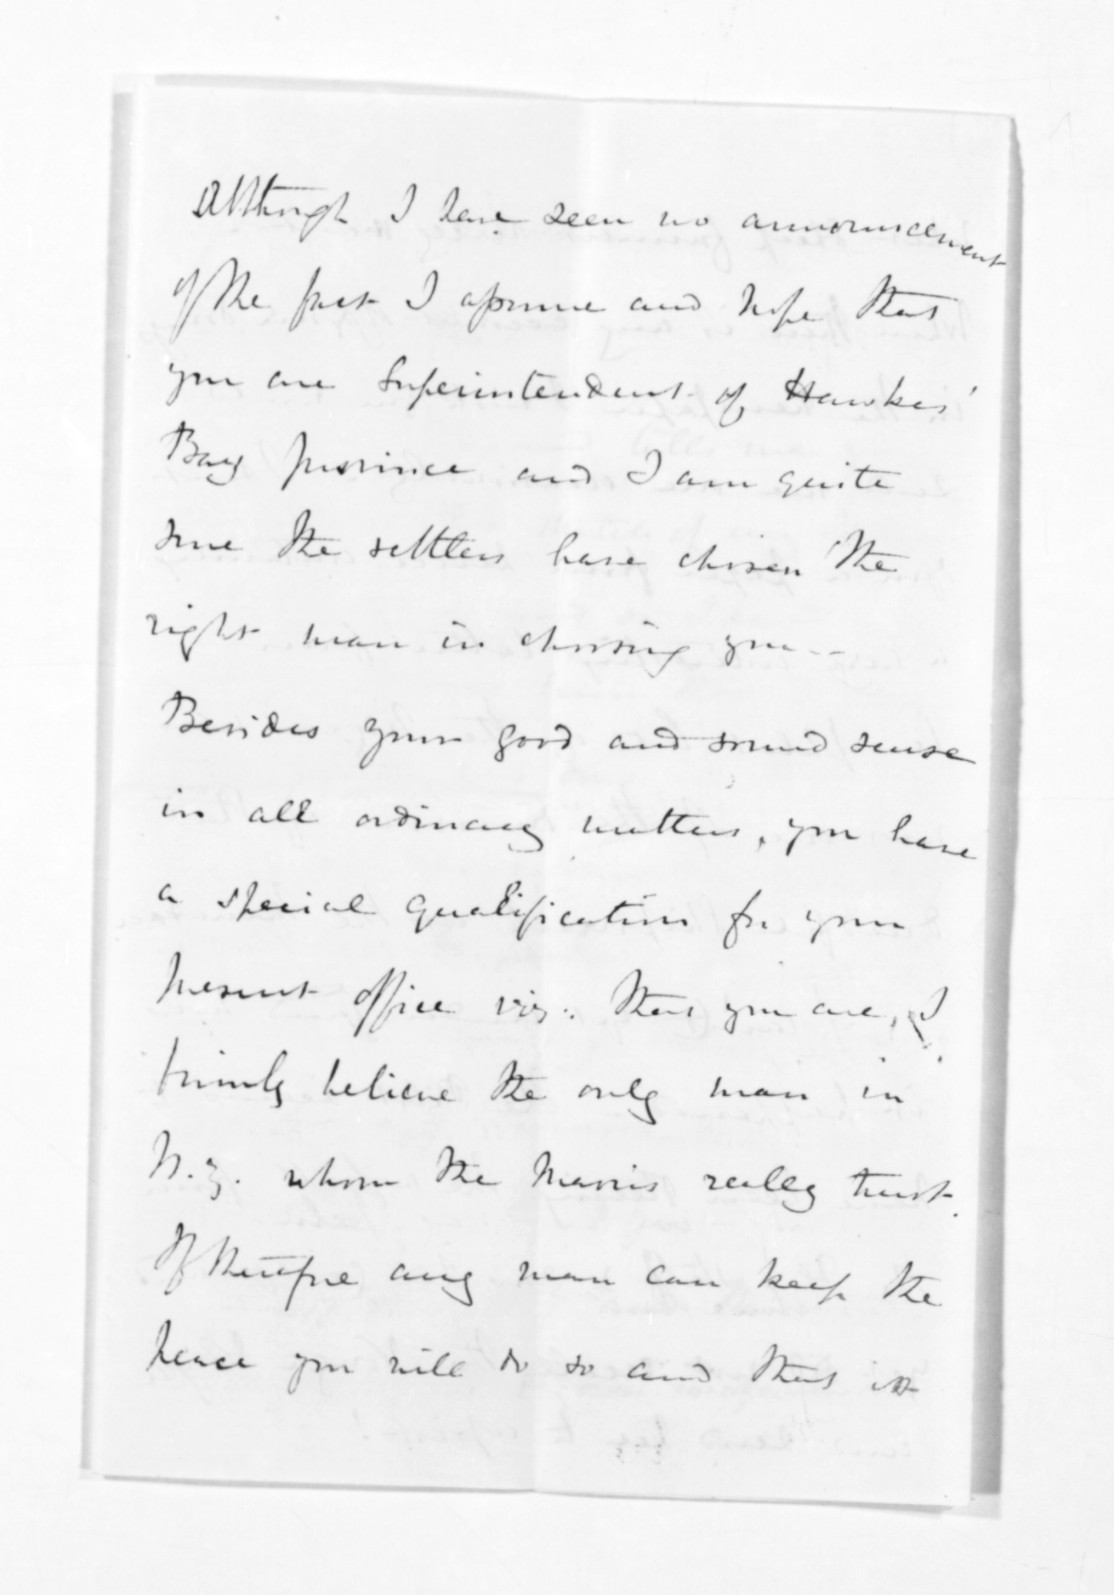 Although I have seen no announcement
of the fact I assume and hope that
you are Superintendent of Hawkes'
Bay province and I am quite
sure the settlers have chosen the
right man in choosing you --
Besides your good and sound sense
in all ordinary matters, you have
a special qualification for your
present office viz: that you are, I
firmly believe the only man in
N.Z. whom the Maoris really trust.
If therefore any man can keep the
peace you will do so and that is